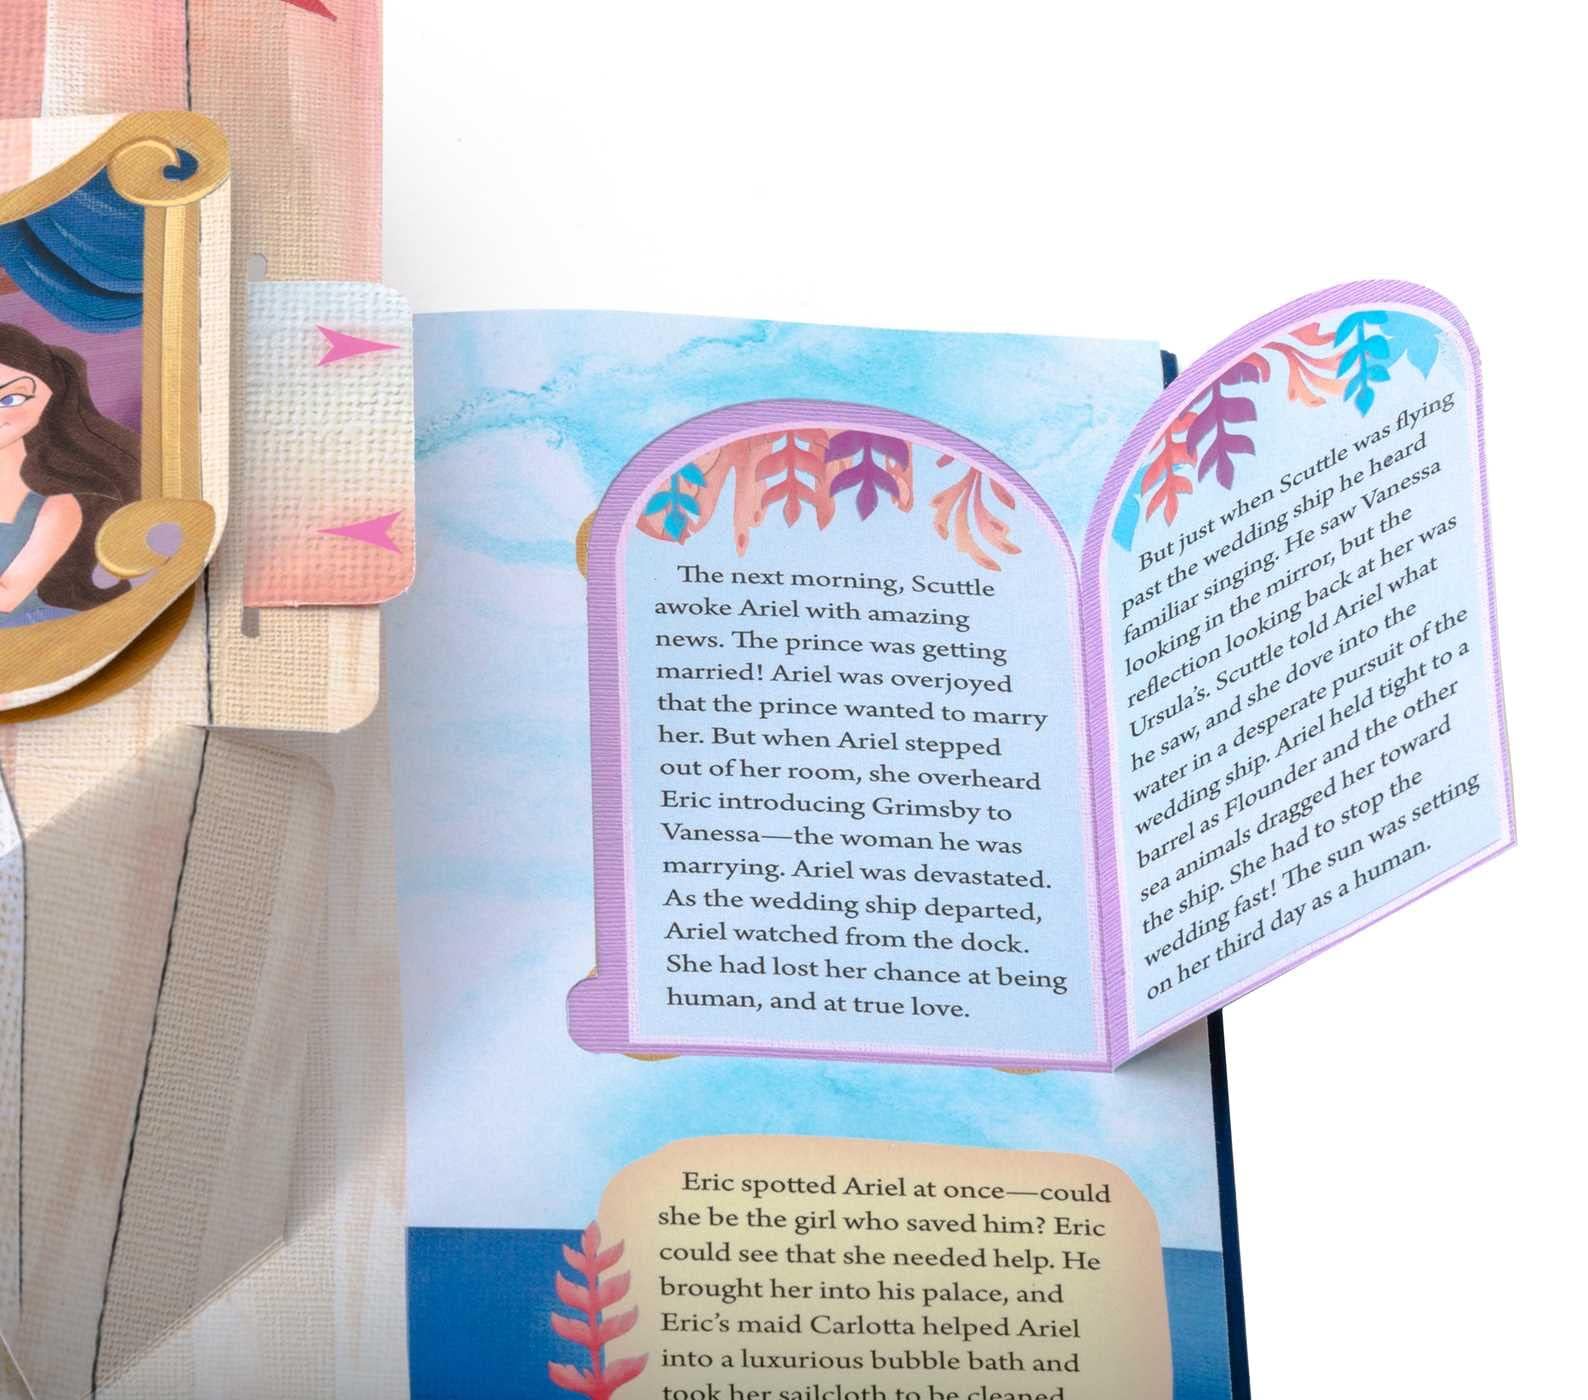 The next morning, Scuttle
awoke Ariel with amazing
news. The prince was getting
married! Ariel was overjoyed
that the prince wanted to marry
her. But when Ariel stepped
out of her room, she overheard
Eric introducing Grimsby to
Vanessa—the woman he was
marrying. Ariel was devastated.
As the wedding ship departed,
Ariel watched from the dock.
She had lost her chance at being
human, and at true love.
But just when Scuttle was flying
past the wedding ship he heard
familiar singing. He saw Vanessa
looking in the mirror, but the
reflection looking back at her was
Ursula’s. Scuttle told Ariel what
he saw, and she dove into the
water in a desperate pursuit of the
wedding ship. Ariel held tight to a
barrel as Flounder and the other
sea animals dragged her toward
the ship. She had to stop the
wedding fast! The sun was setting
on her third day as a human.
Eric spotted Ariel at once—could
she be the girl who saved him? Eric
could see that she needed help. He
brought her into his palace, and
Eric’s maid Carlotta helped Ariel
into a luxurious bubble bath and
took her sailcloth to be cleaned.